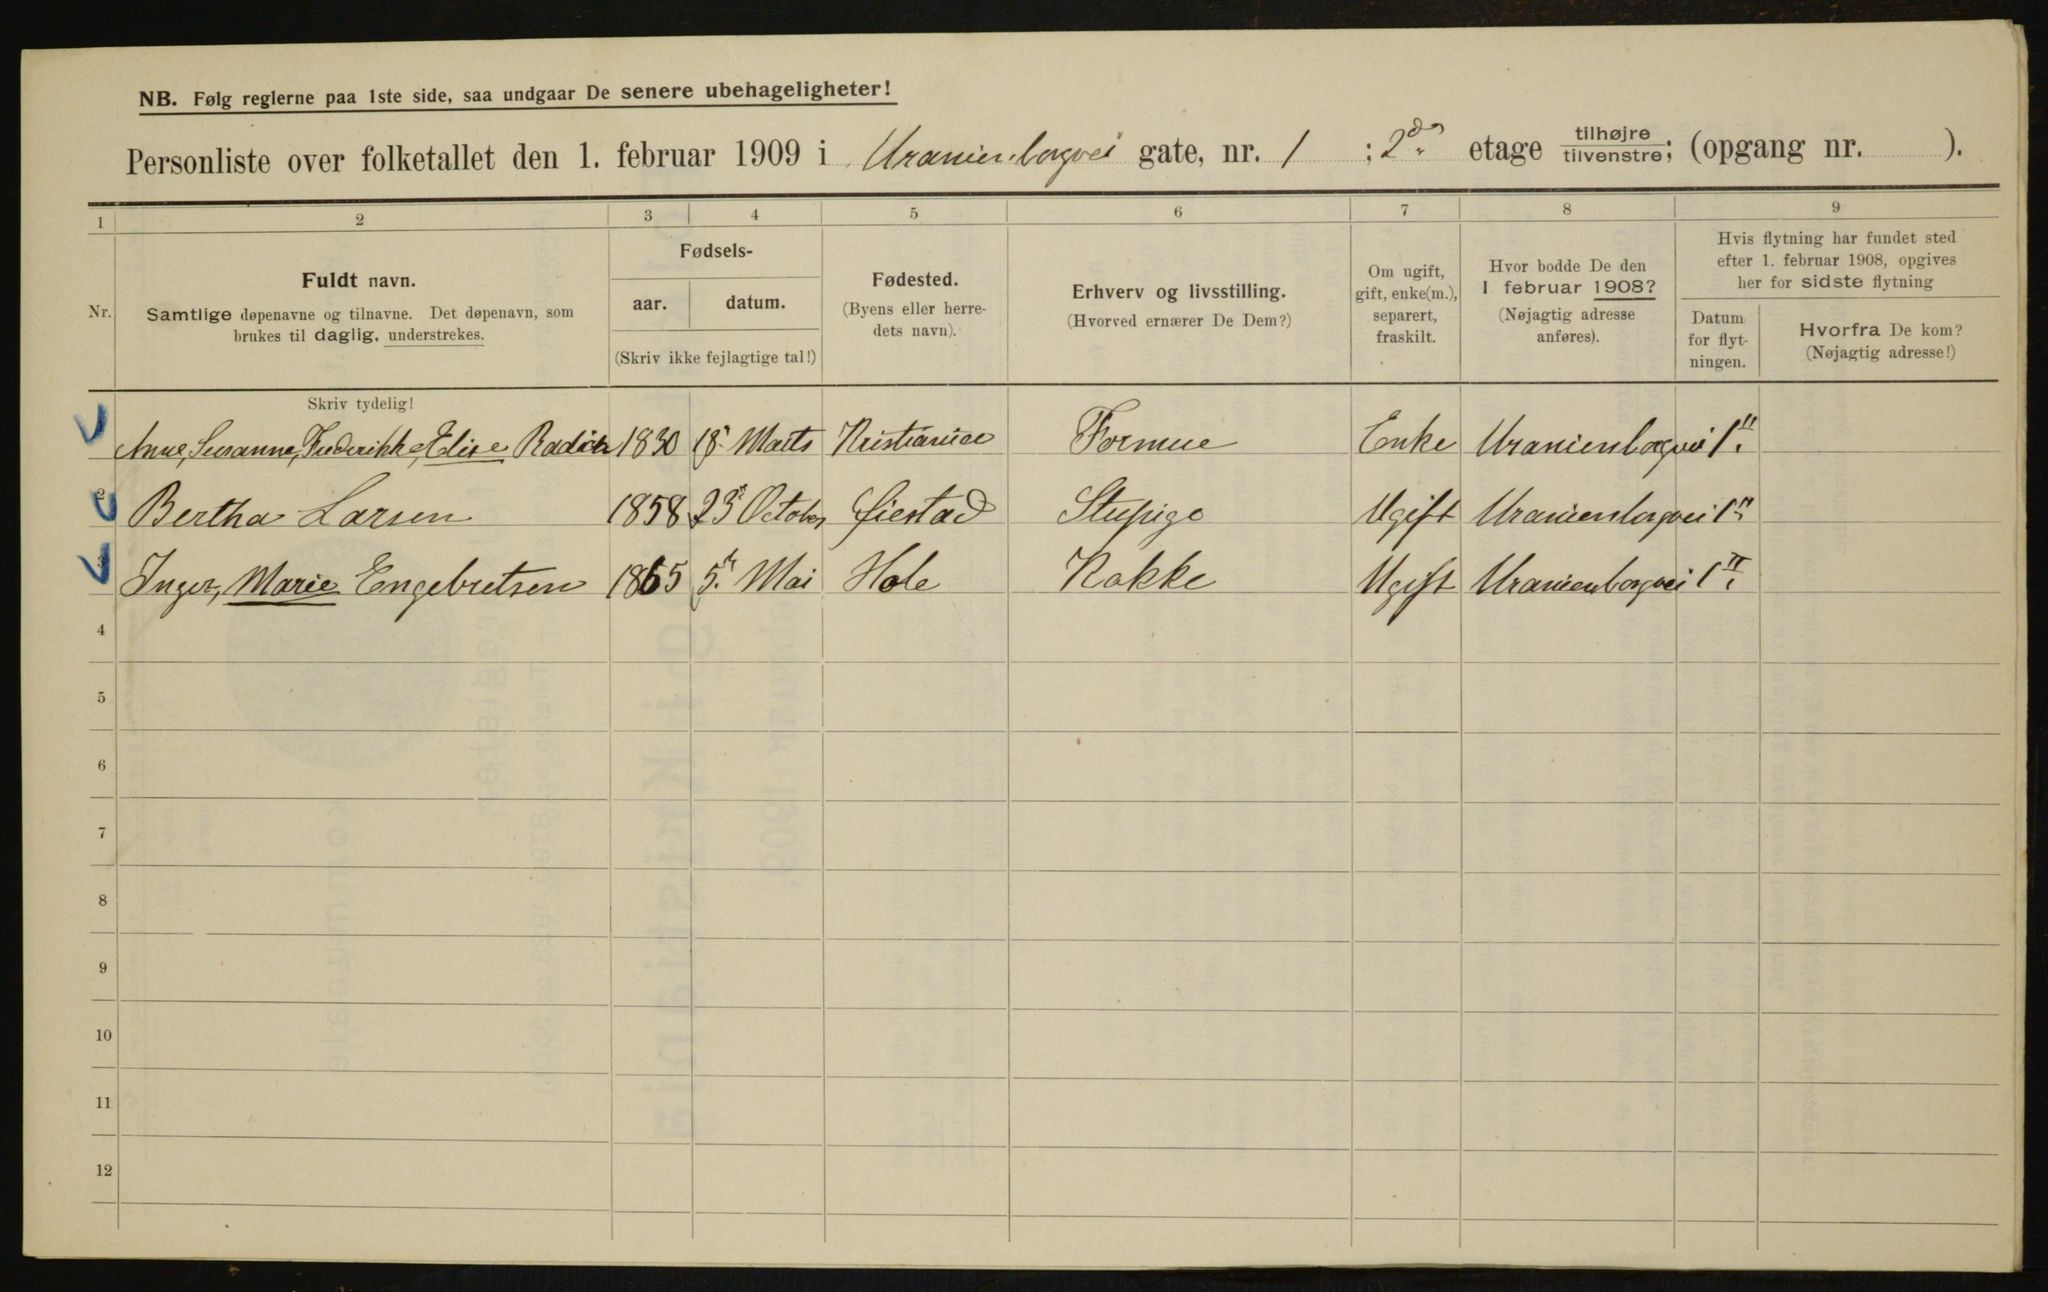 NB. Følg reglerne paa 1ste side, saa undgaar De senere ubehageligheter!
Personliste over folketallet den 1. februar 1909 i Uranienborgvei gate, nr. 1 ; 2den etage tilhøjre / tilvenstre; (opgang nr. ).
1 2 3 4 5 6 7 8 9
Nr.
Fuldt navn.
Samtlige døpenavne og tilnavne. Det døpenavn, som
brukes til daglig, understrekes.
Fødsels-
aar. datum.
(Skriv ikke fejlagtige tal!)
Fødested.
(Byens eller herre-
dets navn).
Erhverv og livsstilling.
(Hvorved ernærer De Dem?)
Om ugift,
gift, enke(m.),
separert,
fraskilt.
Hvor bodde De den
1 februar 1908?
(Nøjagtig adresse
anføres).
Hvis flytning har fundet sted
efter 1. februar 1908, opgives
her for sidste flytning
Datum
for flyt-
ningen.
Hvorfra De kom?
(Nøjagtig adresse!)
Skriv tydelig!
Anne, Susanne, Frederikke, Elise Radich 1830 18 Marts Kristiania Formue Enke Uranienborgvei 1 II
2 Bertha Larsen 1858 23 October Øiestad Stupige Ugift Uranienborgvei 1
3 Inger, Marie Engebretsen 1865 5. Mai Hole Kokke Ugift Uranienborgvei 1 II
4
5
6
7
8
9
10
11
12